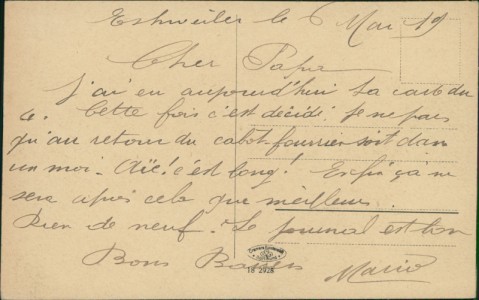 Eshweiler le 6 Mai 19
Cher Papa
J'ai eu aujourd'hui ta carte du
4. Cette fois c'est décidé. Je ne pars
qu'au retour du cabot fourrier soit dans
un mois. Aïe! c'est long! Enfin ça ne
sera après cela que meilleur.
Rien de neuf. Le journal est bon
Bons Baisers
18 2928